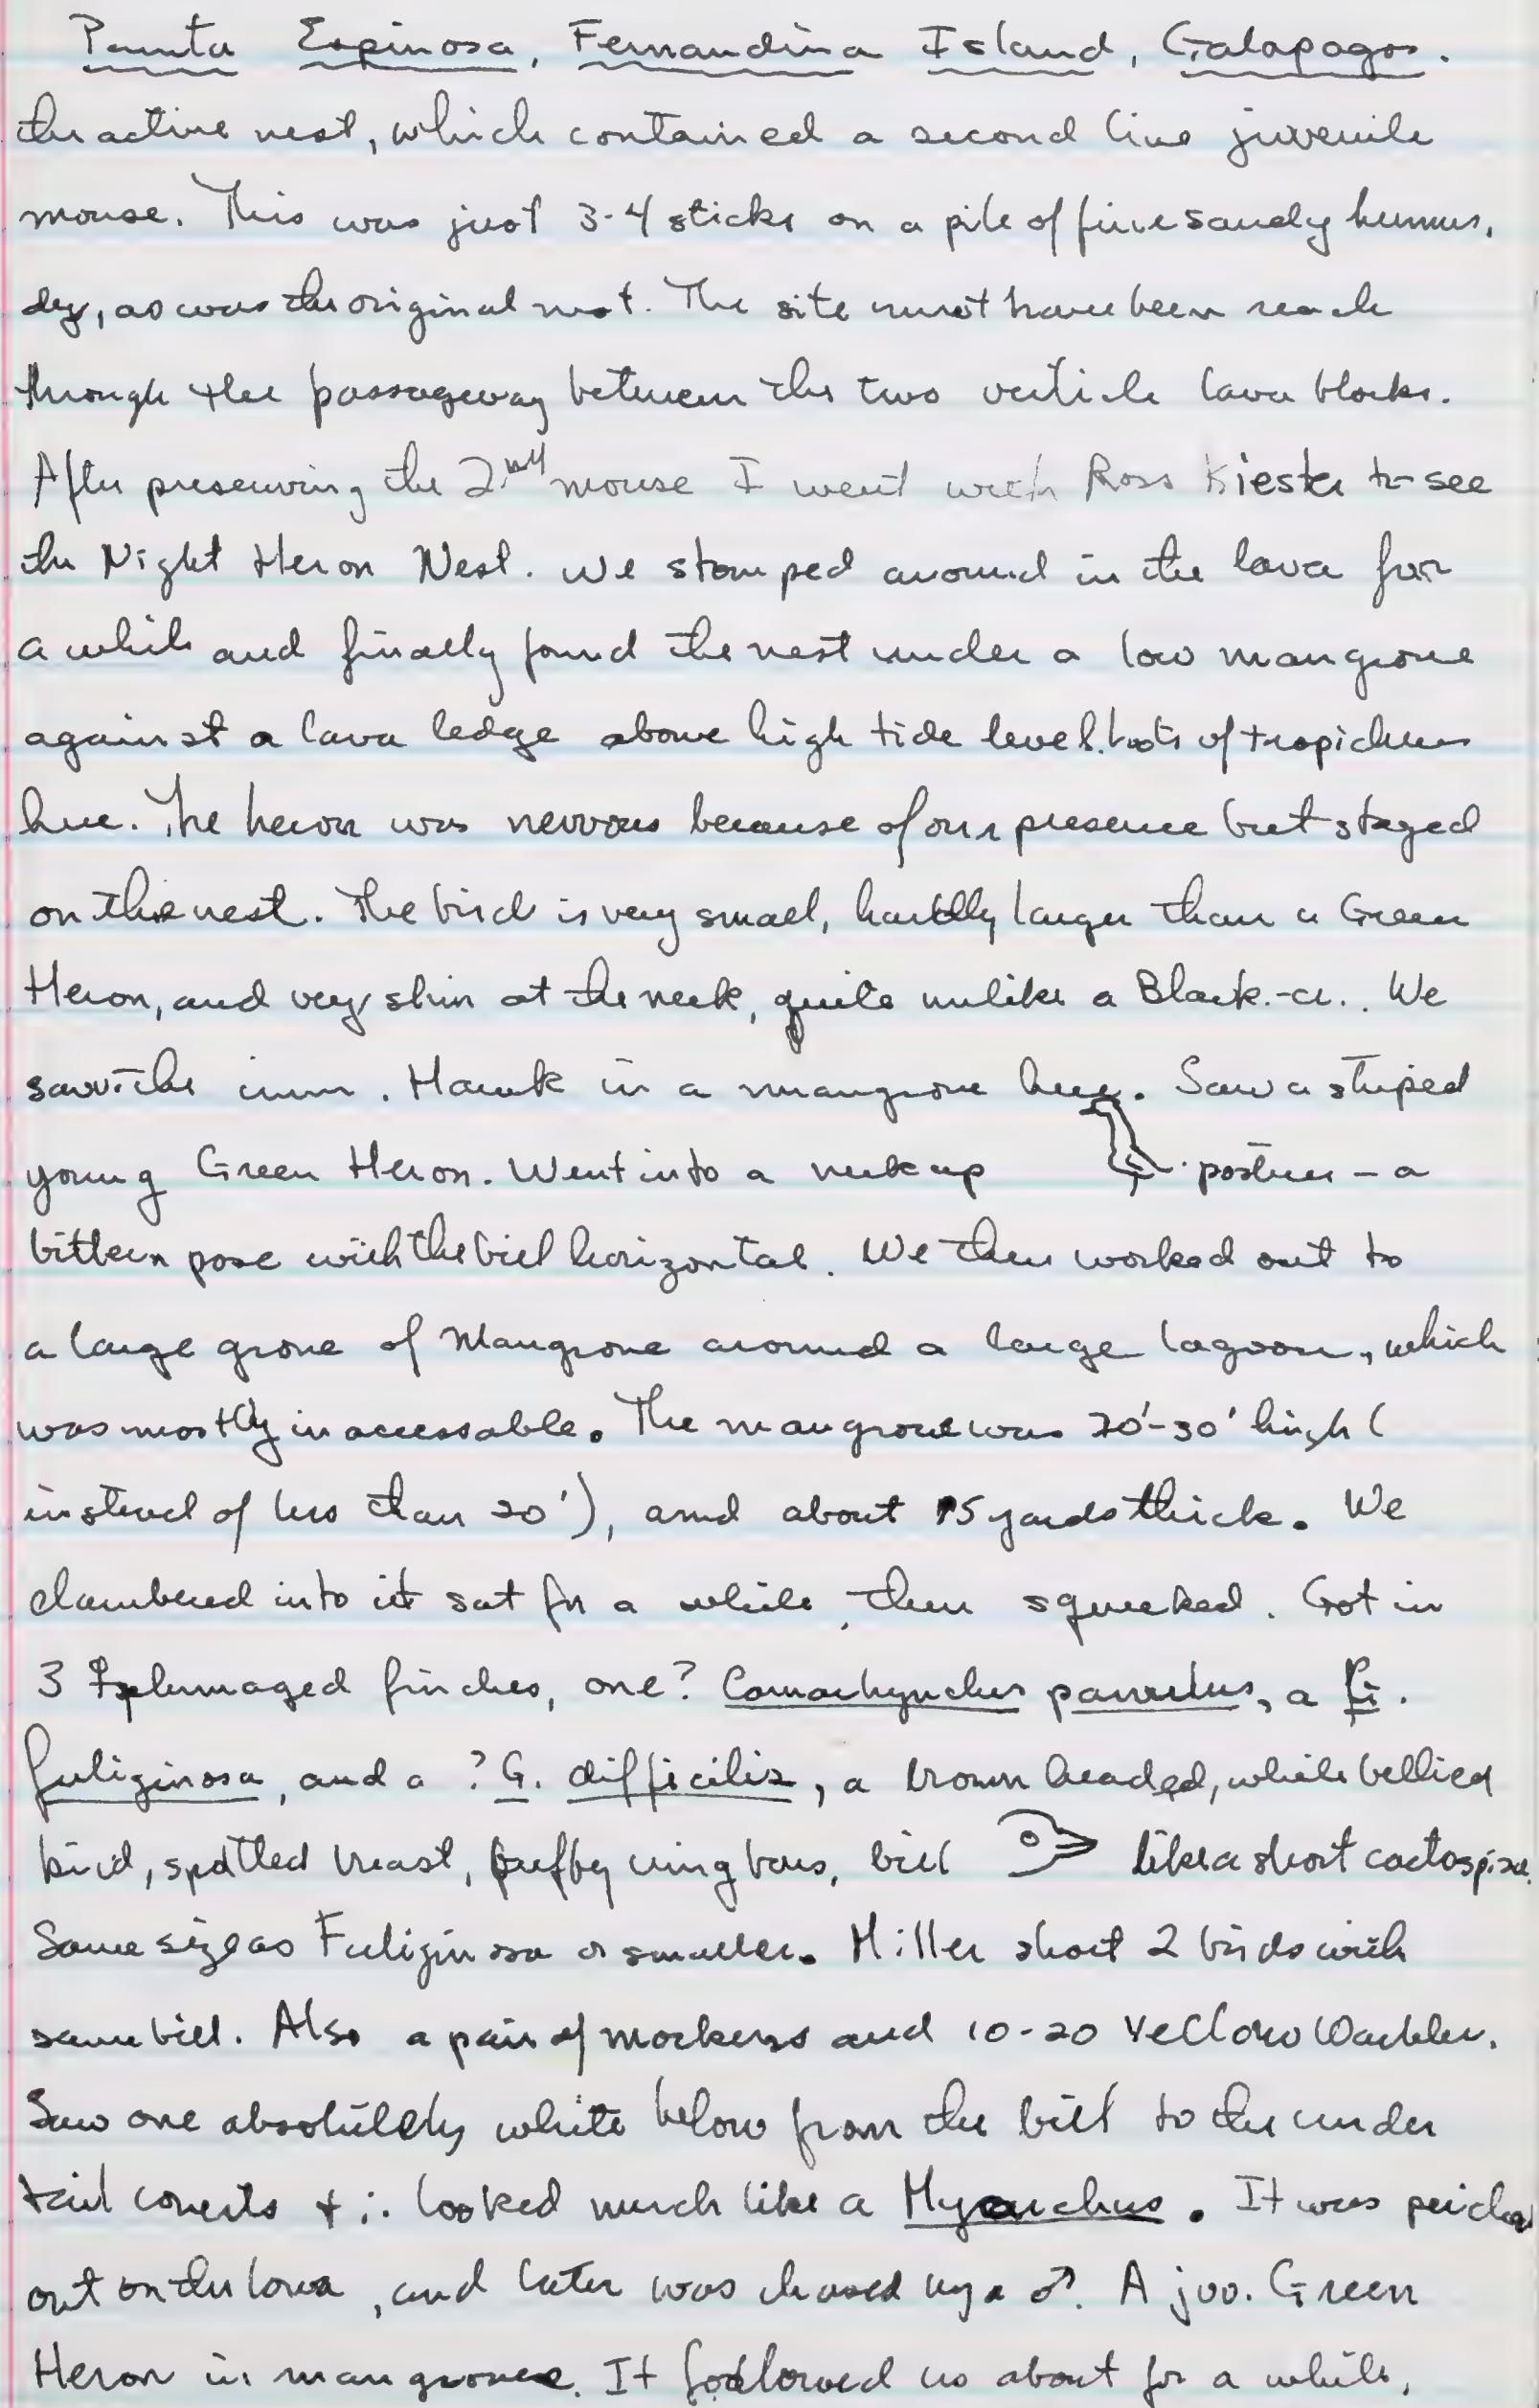 Punta Espinosa, Fernandina Island, Galapagos.
the active nest, which contained a second live juvenile
mouse. This was just 3-4 sticks on a pile of fine sandy humus,
dry, as was the original nest. The site must have been reach
through the passageway between the two verticle lava blocks.
After preserving the 2nd mouse I went with Ross Kiester to see
the Night Heron Nest. We stomped around in the lava for
a while and finally found the nest under a low mangrove
against a lava ledge above high tide level. Lots of tropidurus
here. The heron was nervous because of our presence but stayed
on the nest. The bird is very small, hardly larger than a Green
Heron, and very slim at the neck, quite unlike a Black-cr. We
saw the imm. Hawk in a mangrove here. Saw a striped
young Green Heron. Went into a neck up posture - a
bittern pose with the bill horizontal. We then worked out to
a large grove of Mangrove around a large lagoon, which
was mostly inaccessable. The mangrove was 20'-30' high (
instead of less than 20'), and about 15 yards thick. We
clambered into it sat for a while, then squeeked. Got in
3 ♀ plumaged finches, one ? Camarhynchus parvulus, a G.
fuliginosa, and a ? G. difficilis, a brown headed, white bellied
bird, spotted breast, buffy wing bars, bill like a short cactospiza.
Same size as Fuliginosa or smaller. Miller shot 2 birds with
same bill. Also a pair of mockers and 10-20 Yellow Warbler.
Saw one absolutely white below from the bill to the under
tail coverts + ∴ looked much like a Myiarchus. It was perched
out on the lava, and later was chased by a ♂. A juv. Green
Heron in mangroves. It followed us about for a while,